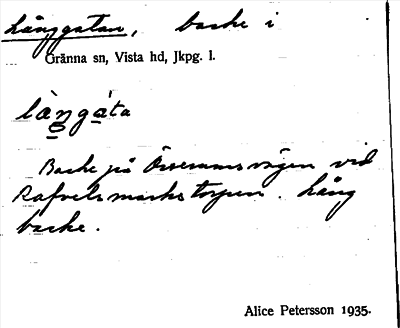 Långgatan, backe i
Gränna sn, Vista hd, Jkpg. l.
làŋgáta
Backe på Örserumsvägen vid
Rafvelsmarks torpen. Lång
backe.
Alice Petersson 1935.